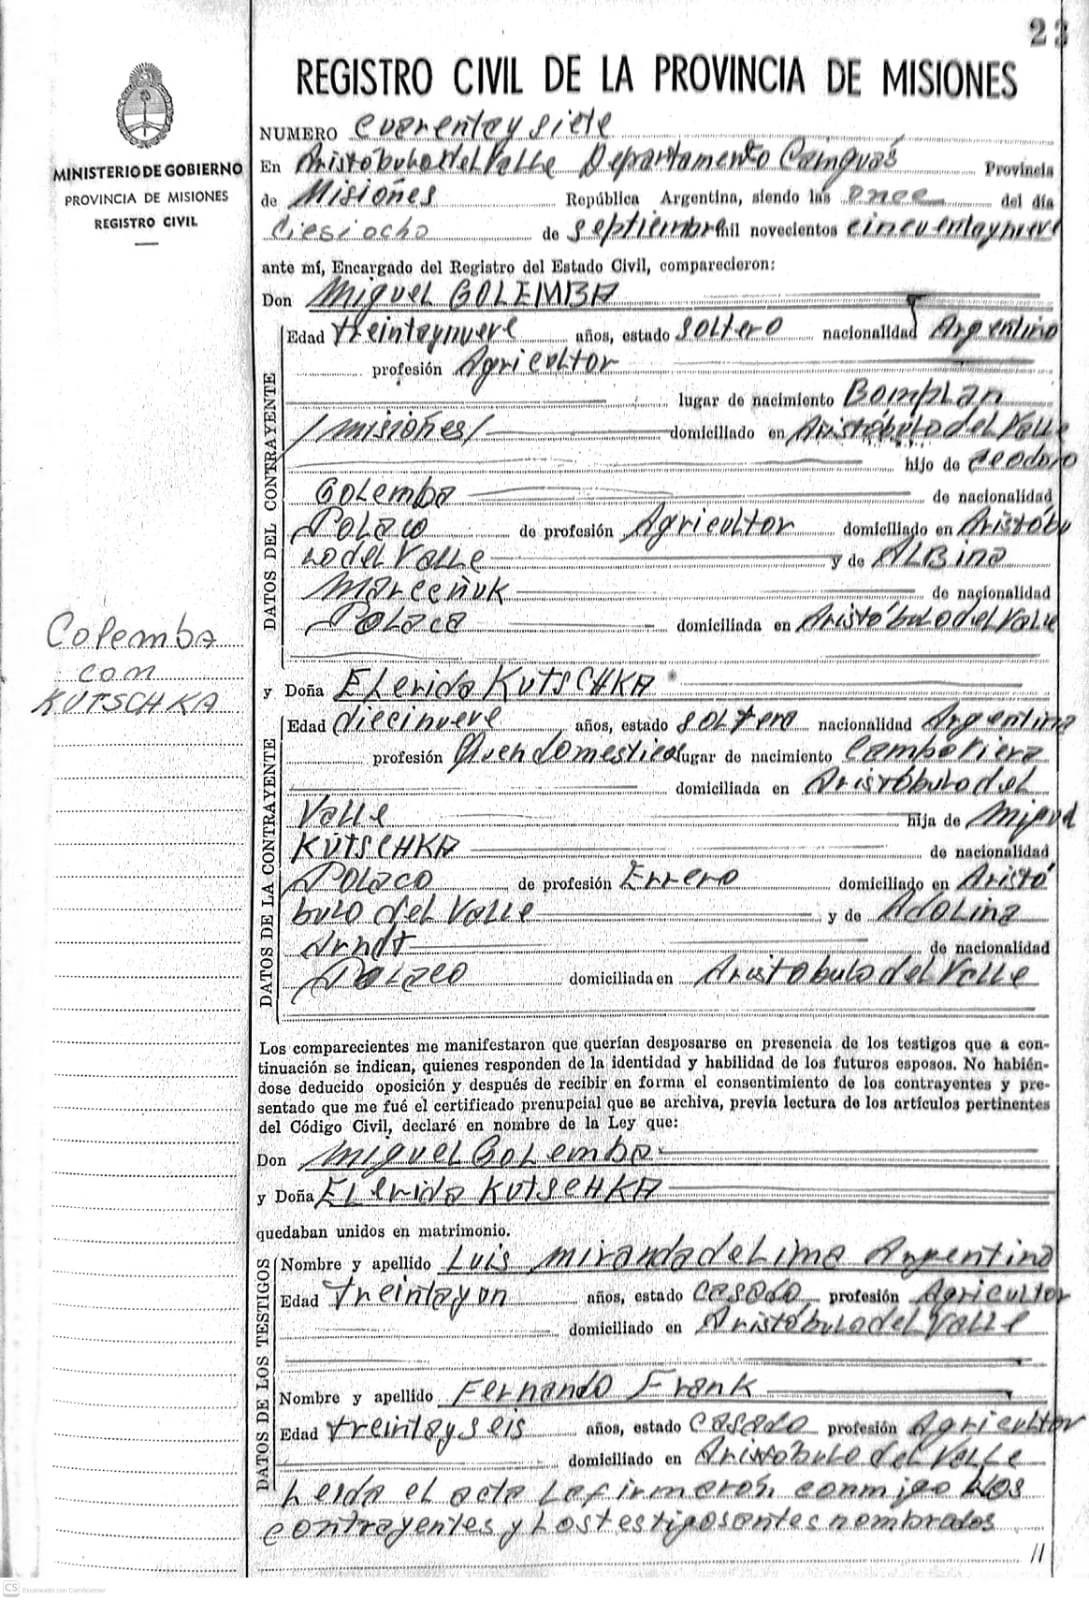 23
REGISTRO CIVIL DE LA PROVINCIA DE MISIONES
MINISTERIO DE GOBIERNO
PROVINCIA DE MISIONES
REGISTRO CIVIL
NUMERO Cuarentaysiete
En Aristóbulo del Valle Departamento Cainguás Provincia
de Misiones República Argentina, siendo las once del día
Diesiocho de septiembre mil novecientos cincuentaynueve
ante mí, Encargado del Registro del Estado Civil, comparecieron:
Don Miguel GOLEMBA
DATOS DEL CONTRAYENTE
Edad treintaynueve años, estado soltero nacionalidad Argentino
profesión Agricultor
lugar de nacimiento Bomplan
/misiones/ domiciliado en Aristóbulo del Valle
hijo de Teodoro
Golemba de nacionalidad
Polaco de profesión Agricultor domiciliado en Aristóbu
lo del Valle y de ALBina
Marceñuk de nacionalidad
Polaca domiciliada en Aristóbulo del Valle
Golemba
con
KUTSCHKA
y Doña ELerida KUTSCHKA
DATOS DE LA CONTRAYENTE
Edad diecinueve años, estado soltera nacionalidad Argentina
profesión Quendomestica lugar de nacimiento Campo Viera
domiciliada en Aristóbulo del
Valle hija de Miguel
KUTSCHKA de nacionalidad
Polaco de profesión Errero domiciliado en Aristó
bulo del Valle y de Adolina
Arndt de nacionalidad
Polaco domiciliada en Aristobulo del Valle
Los comparecientes me manifestaron que querían desposarse en presencia de los testigos que a con-
tinuación se indican, quienes responden de la identidad y habilidad de los futuros esposos. No habién-
dose deducido oposición y después de recibir en forma el consentimiento de los contrayentes y pre-
sentado que me fué el certificado prenupcial que se archiva, previa lectura de los artículos pertinentes
del Código Civil, declaré en nombre de la Ley que:
Don Miguel Golemba
y Doña ELerida KUTSCHKA
quedaban unidos en matrimonio.
DATOS DE LOS TESTIGOS
Nombre y apellido Luis miranda de Lima Argentino
Edad treintayun años, estado casado profesión Agricultor
domiciliado en Aristóbulo del Valle
Nombre y apellido Fernando Frank
Edad treintayseis años, estado casado profesión Agricultor
domiciliado en Aristobulo del Valle
Leida el acta La firmarón conmigo Los
contrayentes y Los testigos antes nombrados
//
CS Escaneado con CamScanner